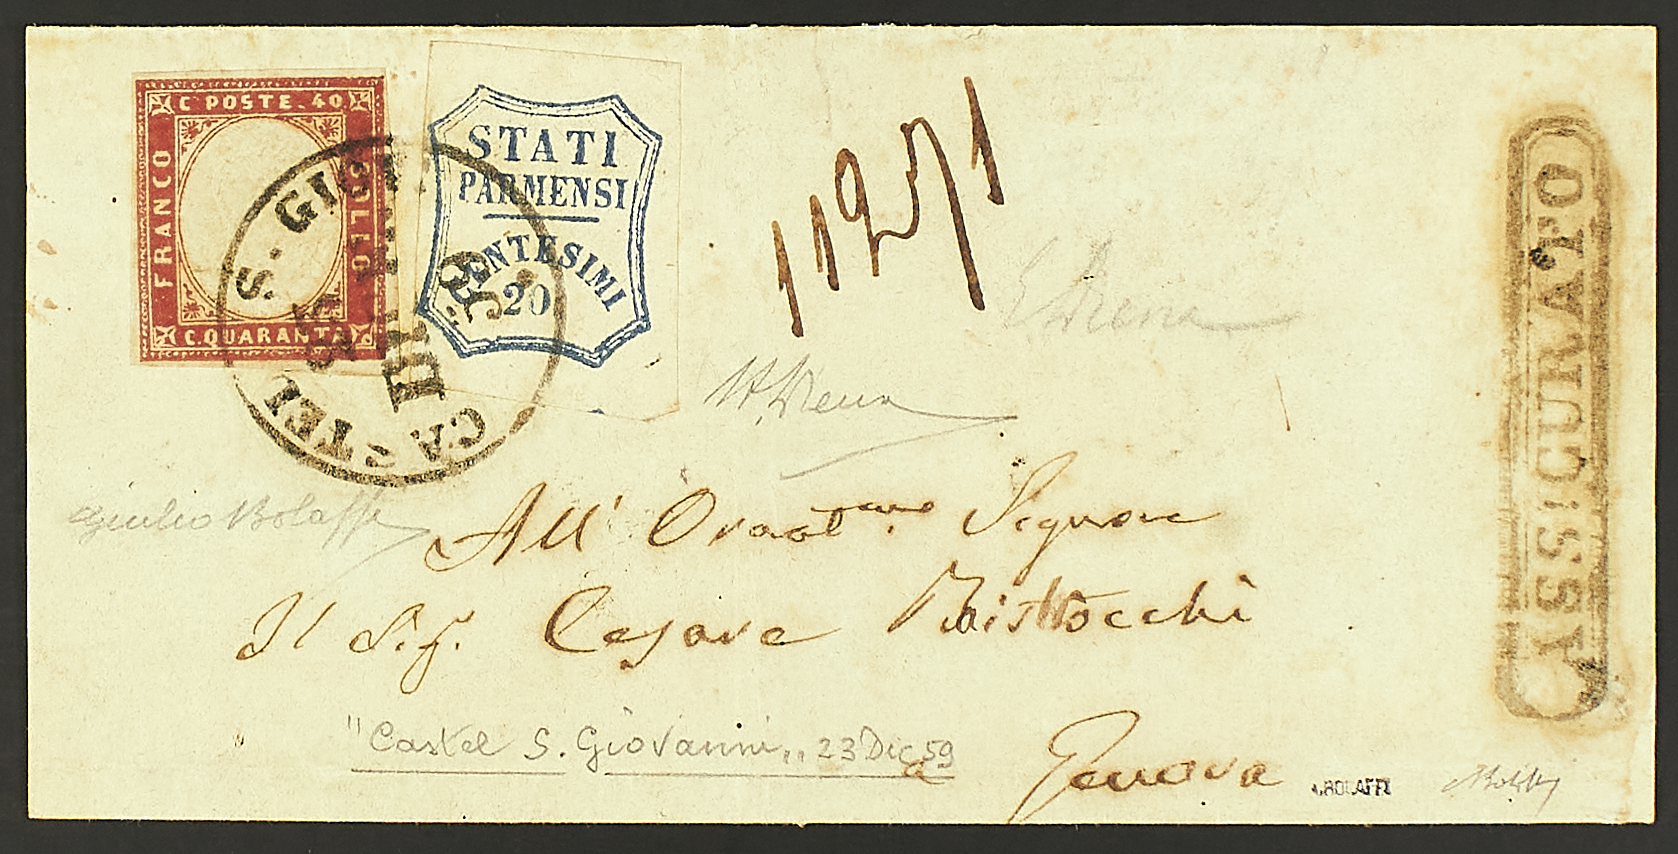 C. POSTE. 40
FRANCO
BOLLO
C. QUARANTA
STATI
PARMENSI
CENTESIMI
20
CASTEL S. GIOV
23 DIC 59
ASSICURATO
Giulio Bolaffi
All' Ornat.mo Signore
Il Sig. Cesare
"Castel S. Giovanni" 23 Dic 59
a Genova
A. BOLAFFI